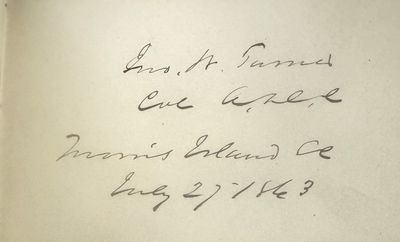 Jno. W. Turner
Col A.D.C
Morris Island SC
July 27 1863